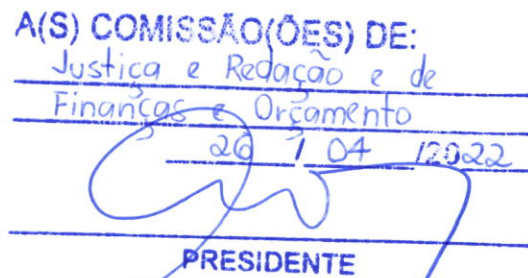 A(S) COMISSÃO(ÕES) DE:
Justiça e Redação e de
Finanças e Orçamento
26 / 04 /2022
PRESIDENTE